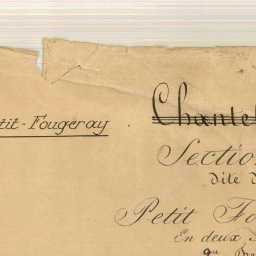 tit-Fougeray
Chantel
Section
dite d
Petit Fo
En deux